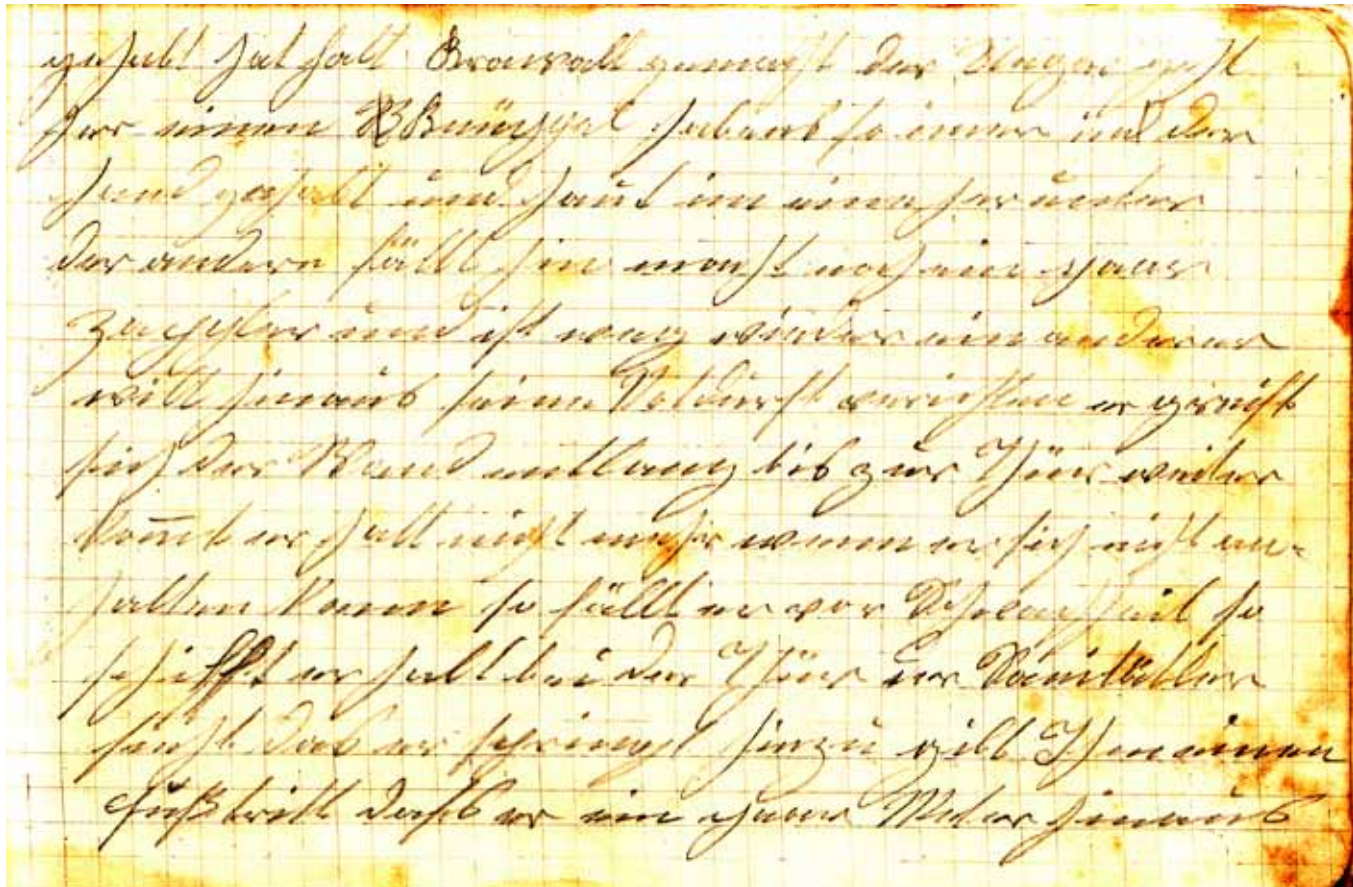 gehabt hat halt Krawall gemacht der Ungar geht
her einen Brüggel habens so immer in der
Hand gehabt und haut im eine herunter
der andere fällt hin macht noch ein paar
Zappler und ist weg wieder ein anderer
will hinaus seine Notdurft verichten er greift
sich der Wand entlang bis zur Thür weiter
kommt er halt nicht mehr wenn er sich nicht an-
halten kann so fällt er vor Schwachheit so
schifft er halt bei der Thür der Sanitätler
sieht das er springt hinzu gibt Ihm einen
Fußtritt daß er ein paar Meter hinaus